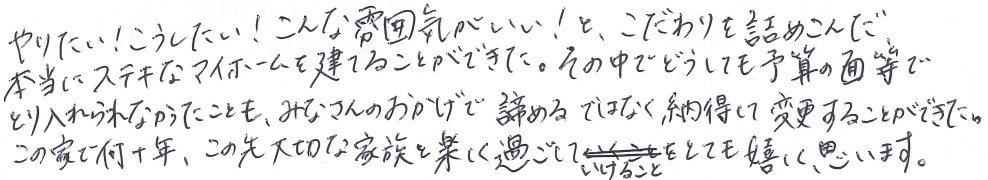 やりたい！こうしたい！こんな雰囲気がいい！と、こだわりを詰めこんだ、
本当にステキなマイホームを建てることができた。その中でどうしても予算の面等で
とり入れられなかったことも、みなさんのおかげで諦めるではなく納得して変更することができた。
この家で何十年、この先大切な家族と楽しく過ごしていけることをとても嬉しく思います。